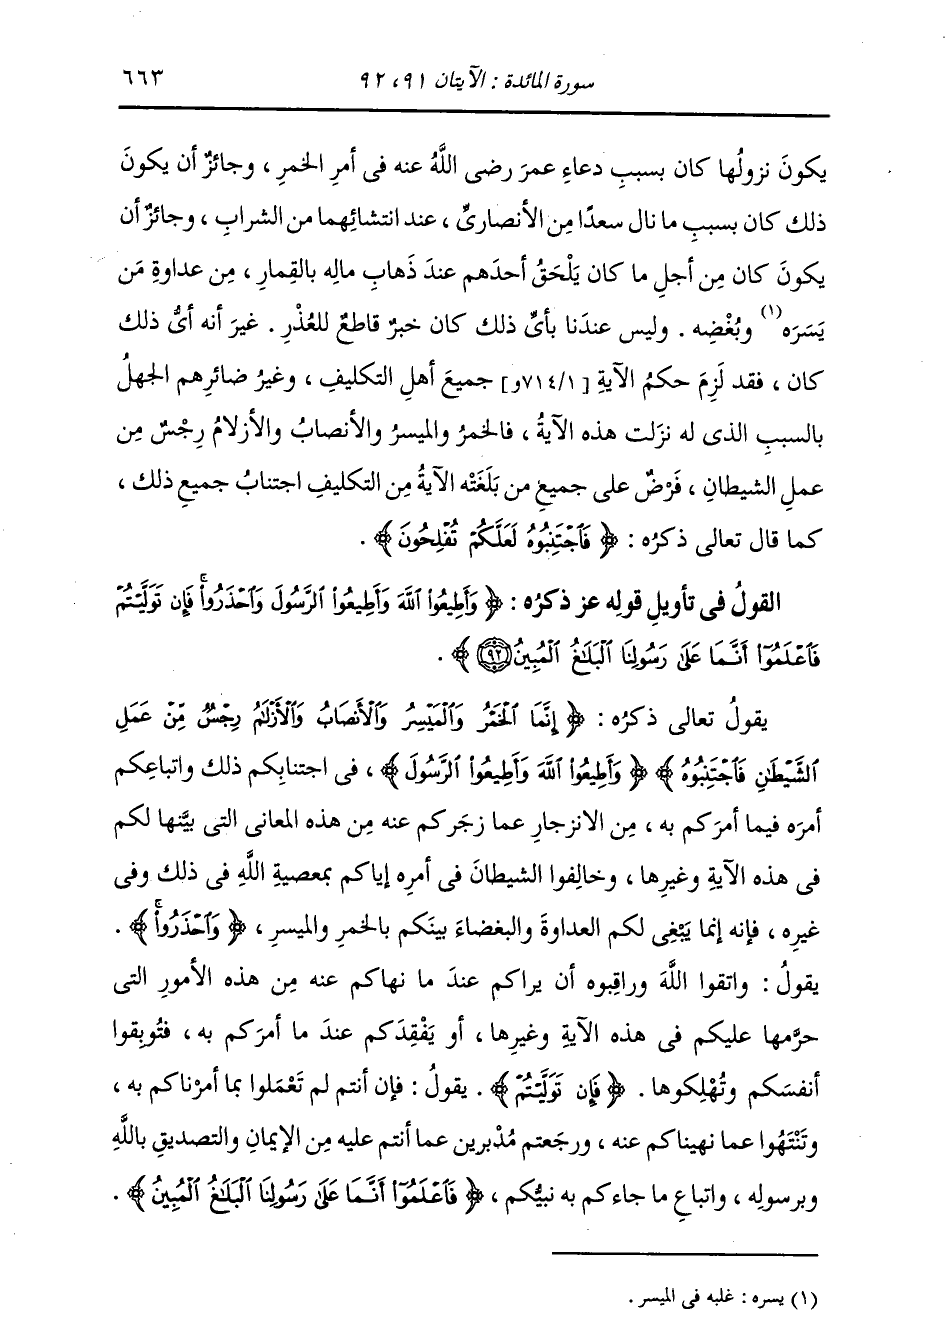 سورة المائدة : الآيتان ٩١ ، ٩٢
٦٦٣
يكونَ نزولُها كان بسببِ دعاءِ عمرَ رضى اللَّهُ عنه فى أمرِ الخمرِ ، وجائزٌ أن يكونَ
ذلك كان بسببِ ما نال سعدًا مِن الأنصارىِّ ، عند انتشائِهما من الشراب ، وجائزٌ أن
يكونَ كان مِن أجلِ ما كان يَلْحَقُ أحدَهم عندَ ذَهابِ مالِه بالقِمارِ ، مِن عداوةِ مَن
يَسَرَه (١) وبُغْضِه . وليس عندَنا بأىِّ ذلك كان خبرٌ قاطعٌ للعُذْرِ . غيرَ أنه أىُّ ذلك
كان ، فقد لَزِمَ حكمُ الآيةِ [ ٧١٤/١و] جميعَ أهلِ التكليفِ ، وغيرُ ضائرِهم الجهلُ
بالسببِ الذى له نزَلت هذه الآيةُ ، فالخمرُ والميسرُ والأنصابُ والأزلامُ رِجْسٌ مِن
عملِ الشيطانِ ، فَرْضٌ على جميعِ من بَلَغَتْه الآيةُ مِن التكليفِ اجتنابُ جميعِ ذلك ،
كما قال تعالى ذكرُه : ﴿ فَٱجْتَنِبُوهُ لَعَلَّكُمْ تُفْلِحُونَ ﴾ .
القولُ فى تأويلِ قوله عز ذكرُه : ﴿ وَأَطِيعُوا۟ ٱللَّهَ وَأَطِيعُوا۟ ٱلرَّسُولَ وَٱحْذَرُوا۟ۚ فَإِن تَوَلَّيْتُمْ
فَٱعْلَمُوٓا۟ أَنَّمَا عَلَىٰ رَسُولِنَا ٱلْبَلَـٰغُ ٱلْمُبِينُ ٩٢ ﴾ .
يقولُ تعالى ذكرُه : ﴿ إِنَّمَا ٱلْخَمْرُ وَٱلْمَيْسِرُ وَٱلْأَنصَابُ وَٱلْأَزْلَـٰمُ رِجْسٌ مِّنْ عَمَلِ
ٱلشَّيْطَـٰنِ فَٱجْتَنِبُوهُ ﴾ ﴿ وَأَطِيعُوا۟ ٱللَّهَ وَأَطِيعُوا۟ ٱلرَّسُولَ ﴾ ، فى اجتنابِكم ذلك واتباعِكم
أمرَه فيما أمرَكم به ، مِن الانزجارِ عما زجَركم عنه مِن هذه المعانى التى بيَّنها لكم
فى هذه الآيةِ وغيرِها ، وخالِفوا الشيطانَ فى أمرِه إياكم بمعصيةِ اللَّهِ فى ذلك وفى
غيرِه ، فإنه إنما يَبْغِى لكم العداوةَ والبغضاءَ بينَكم بالخمرِ والميسرِ ، ﴿ وَٱحْذَرُوا۟ۚ ﴾ .
يقولُ : واتقوا اللَّهَ وراقِبوه أن يراكم عندَ ما نهاكم عنه مِن هذه الأمورِ التى
حرَّمها عليكم فى هذه الآيةِ وغيرِها ، أو يَفْقِدَكم عندَ ما أمرَكم به ، فتُوبِقوا
أنفسَكم وتُهْلِكوها . ﴿ فَإِن تَوَلَّيْتُمْ ﴾ . يقولُ : فإن أنتم لم تَعْمَلوا بما أمرْناكم به ،
وتَنْتَهُوا عما نهيناكم عنه ، ورجَعتم مُدْبرين عما أنتم عليه مِن الإيمانِ والتصديقِ باللَّهِ
وبرسولِه ، واتباعِ ما جاءكم به نبيُّكم ، ﴿ فَٱعْلَمُوٓا۟ أَنَّمَا عَلَىٰ رَسُولِنَا ٱلْبَلَـٰغُ ٱلْمُبِينُ ﴾ .
(١) يسره : غلبه فى الميسر .